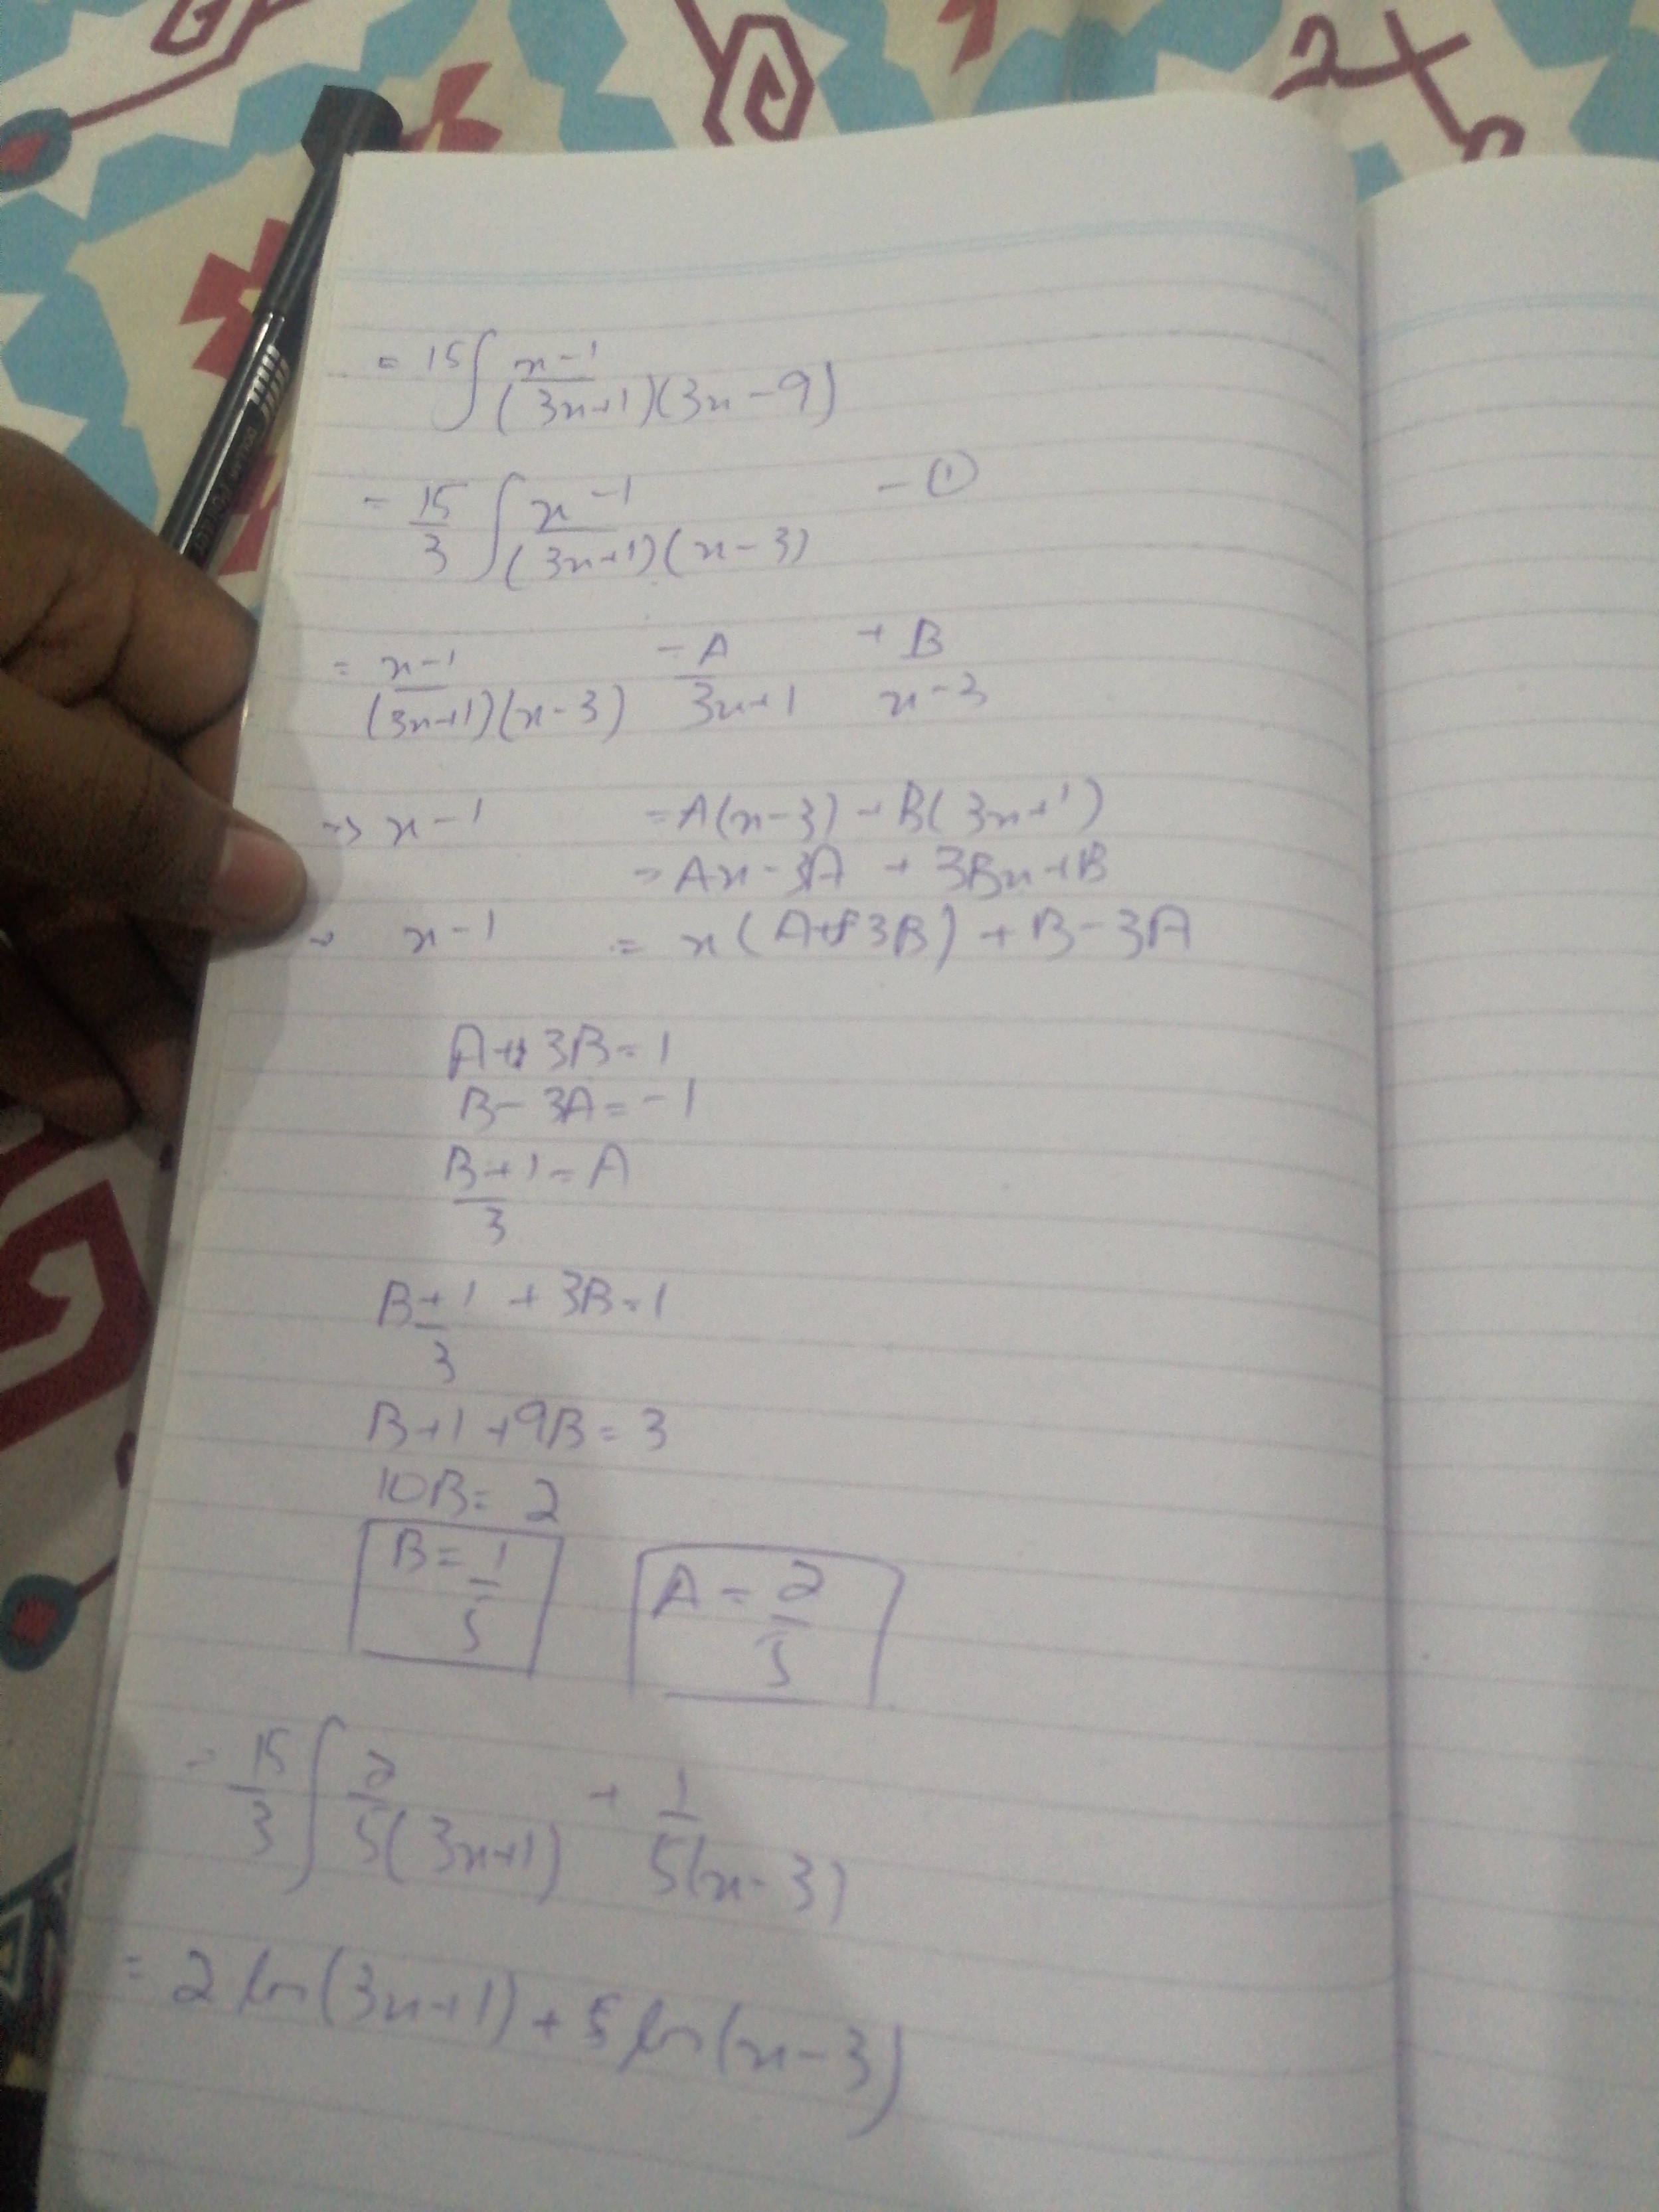 = 15∫ x-1 / (3x+1)(3x-9)
= 15/3 ∫ x-1 / (3x+1)(x-3) - ①
= x-1 / (3x+1)(x-3) = A / 3x+1 + B / x-3
→ x-1 = A(x-3) + B(3x+1)
= Ax-3A + 3Bx+B
→ x-1 = x(A+3B) + B-3A
A+3B=1
B-3A=-1
B+1/3 = A
B+1/3 + 3B=1
B+1+9B=3
10B=2
B=1/5 A=2/5
= 15/3 ∫ 2/5(3x+1) + 1/5(x-3)
= 2 ln(3x+1) + 5 ln(x-3)